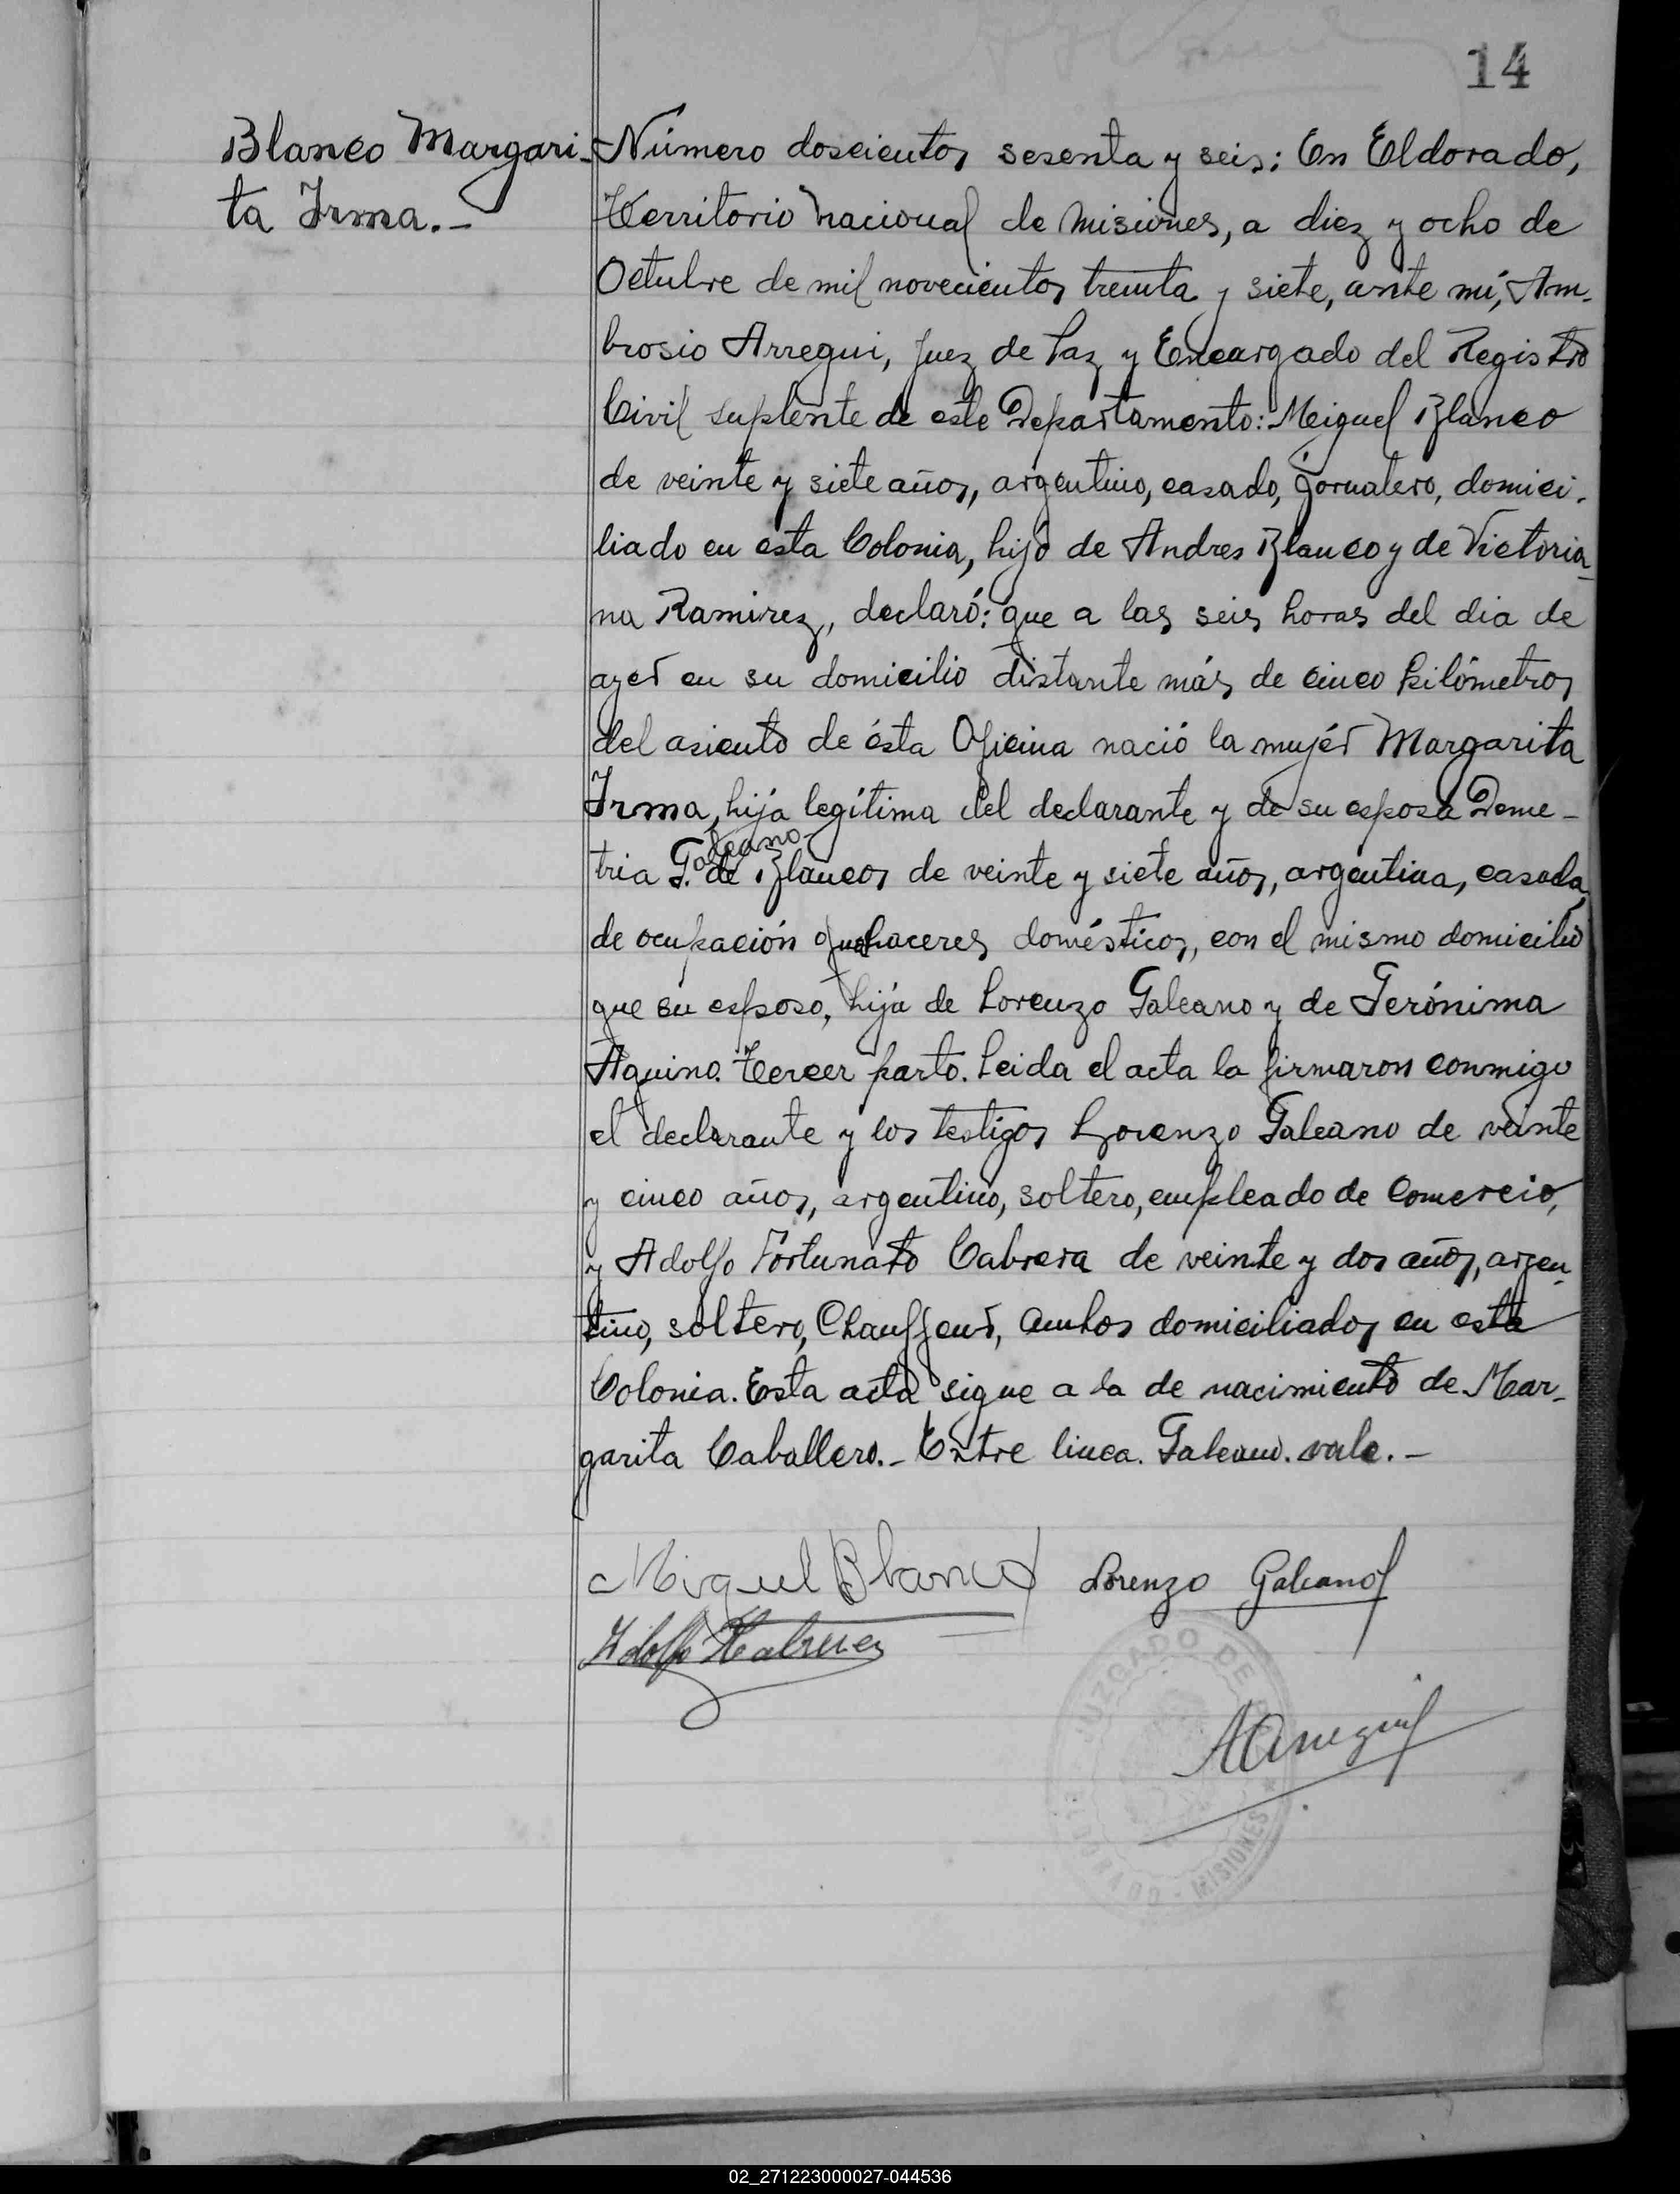 14
Blanco Margari-
ta Irma.-
Número doscientos sesenta y seis: En Eldorado,
Territorio nacional de Misiones, a diez y ocho de
Octubre de mil novecientos treinta y siete, ante mi, Am-
brosio Arregui, Juez de Paz y Encargado del Registro
Civil suplente de este Departamento: Meiguel Blanco
de veinte y siete años, argentino, casado, jornalero, domici-
liado en esta Colonia, hijo de Andres Blanco y de Victoria-
na Ramirez, declaró: que a las seis horas del dia de
ayer en su domicilio distante más de cinco kilómetros
del asiento de ésta Oficina nació la mujér Margarita
Irma, hija legítima del declarante y de su esposa Deme-
Galeano-
tria G. de Blancos de veinte y siete años, argentina, casada,
de ocupación quehaceres domésticos, con el mismo domicilio
que su esposo, hija de Lorenzo Galeano y de Gerónima
Aquino. Tercer parto. Leida el acta la firmaron conmigo
el declarante y los testigos Lorenzo Galeano de veinte
y cinco años, argentino, soltero, empleado de Comercio,
y Adolfo Fortunato Cabrera de veinte y dos años, argen-
tino, soltero, Chauffeur, ambos domiciliados en esta
Colonia. Esta acta sigue a la de nacimiento de Mar-
garita Caballero.- Entre linea. Galeano. vale.-
Miguel Blanco Lorenzo Galeano
Adolfo F Cabrera
JUZGADO DE
AArregui
ELDORADO - MISIONES
02_271223000027-044536